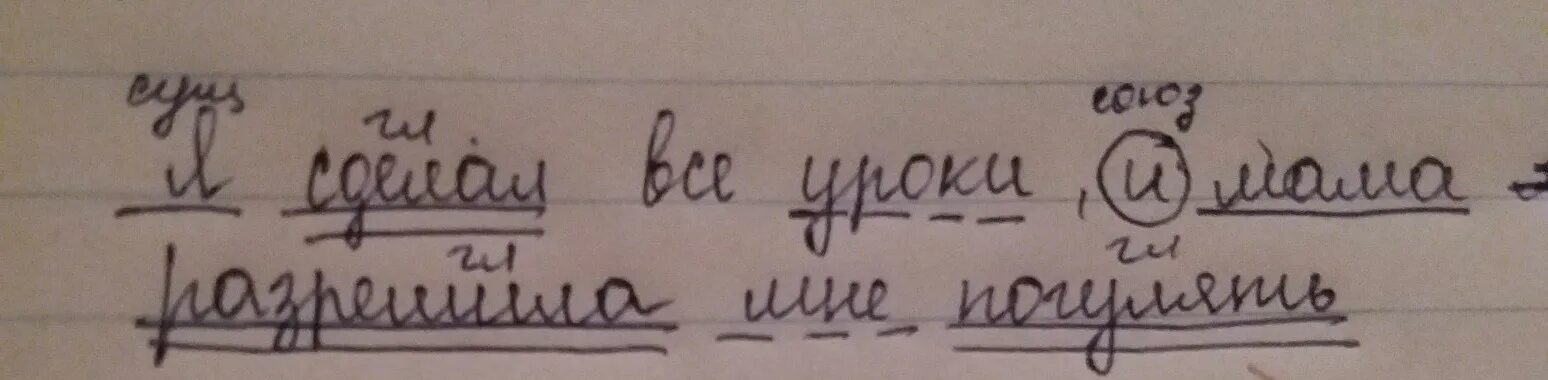 сущ гл союз
Я сделал все уроки, и мама
гл гл
разрешила мне погулять